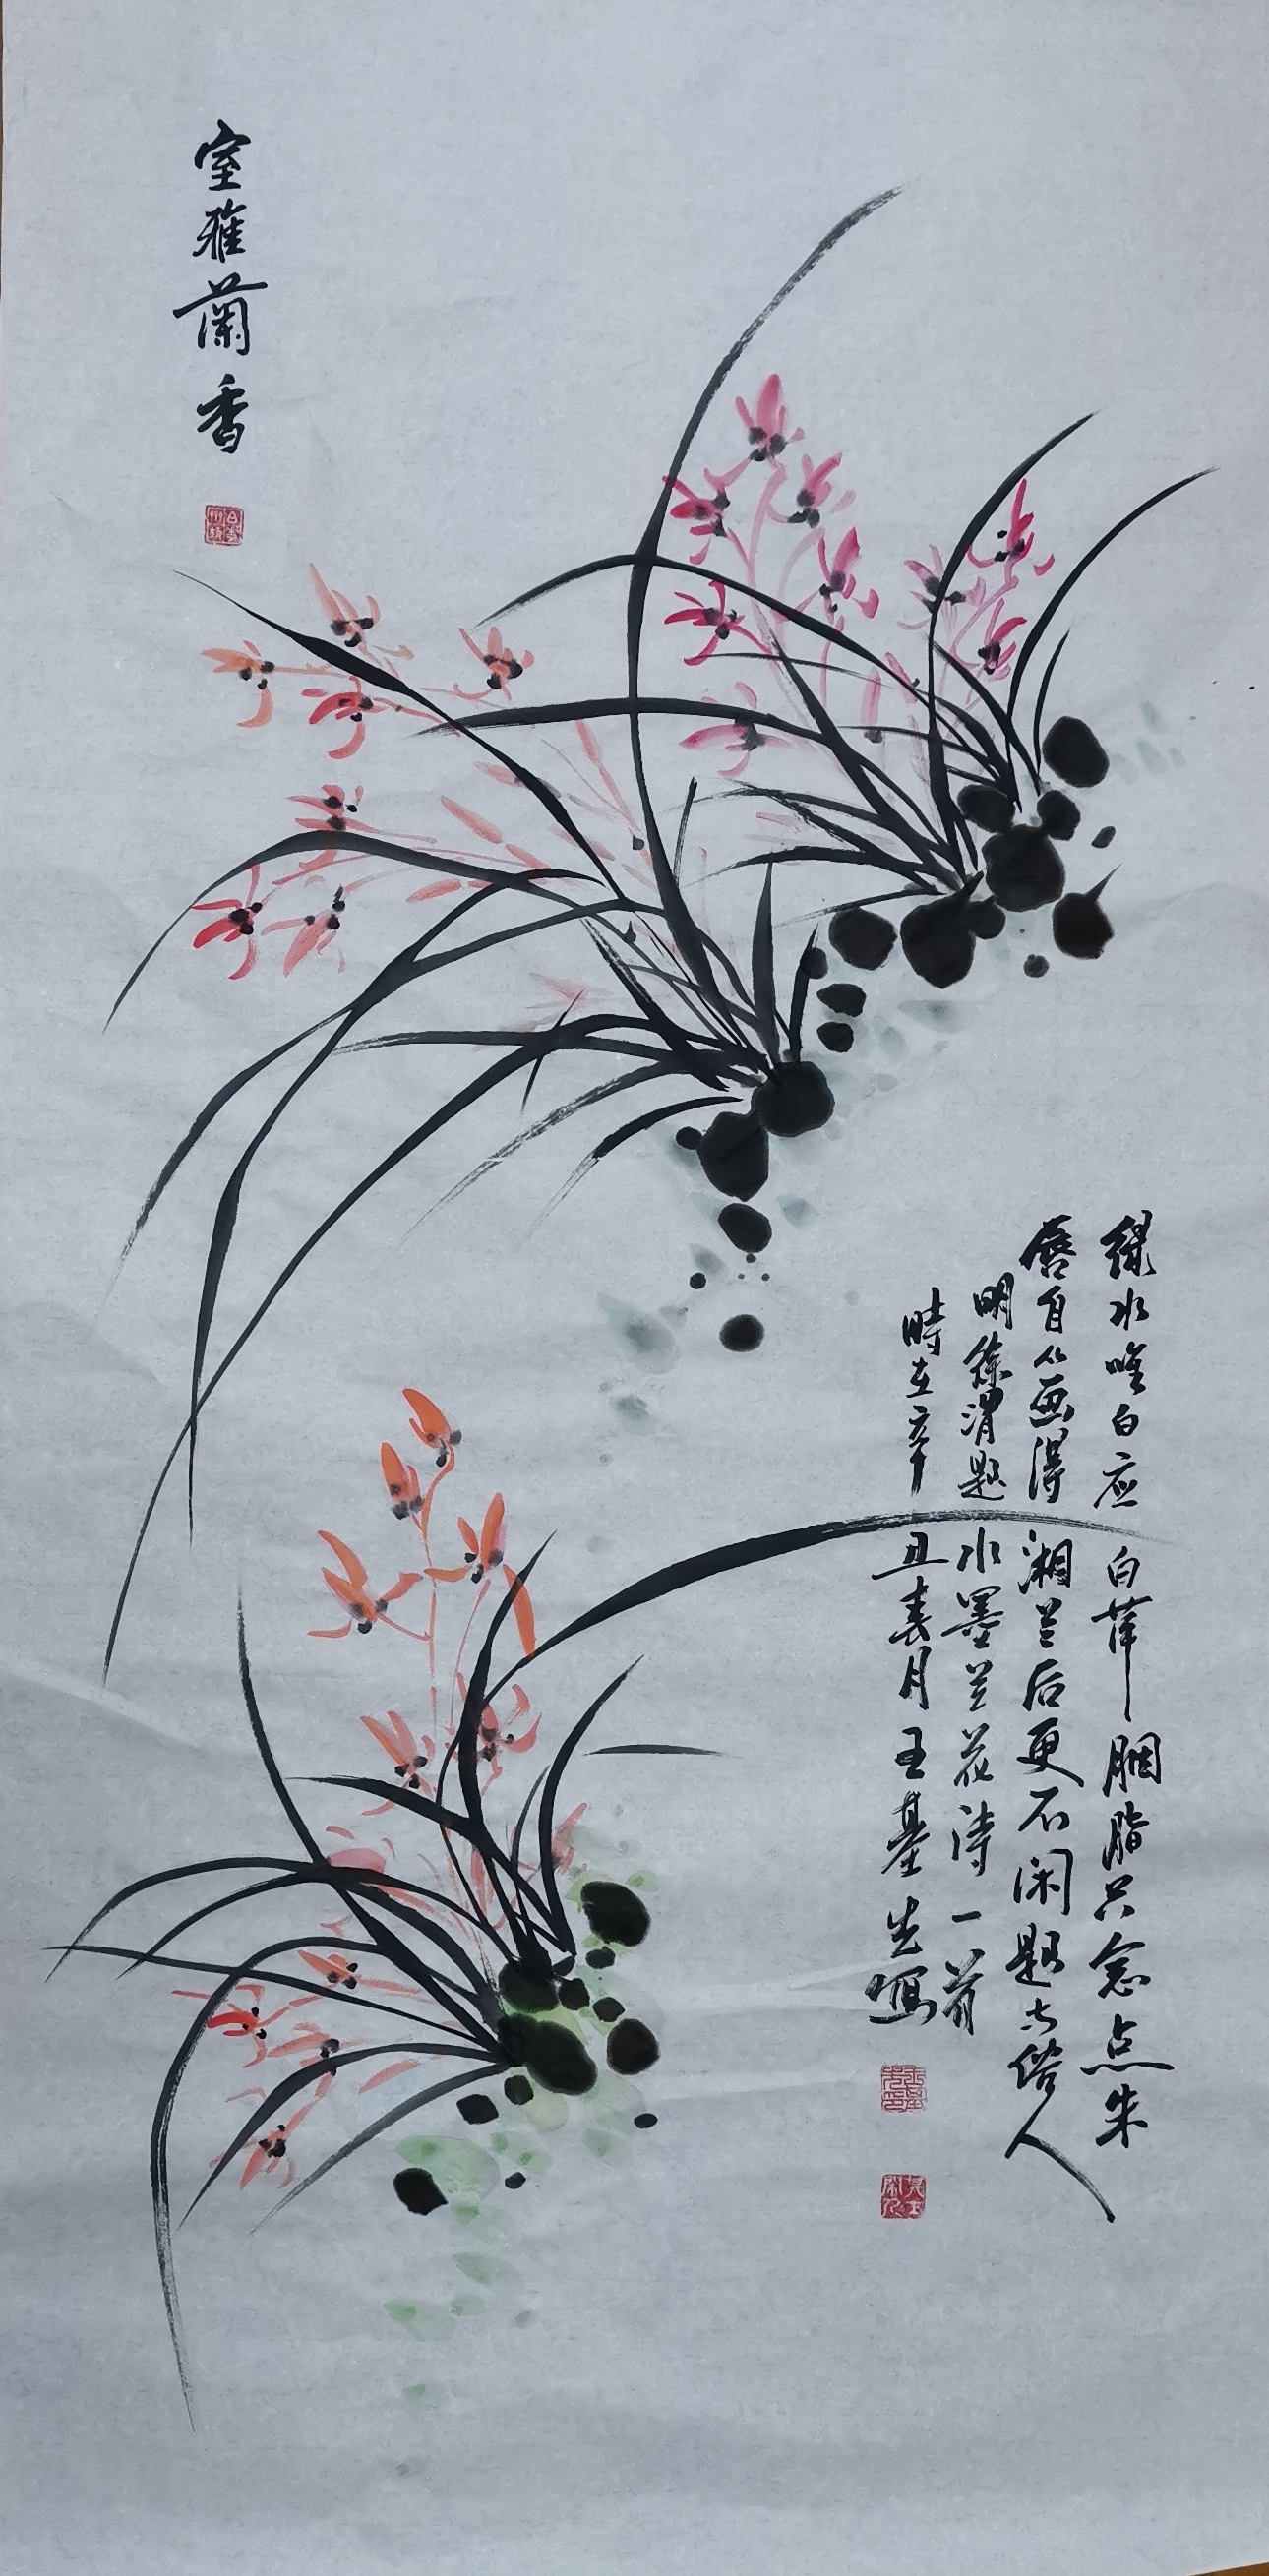 室雅蘭香
绿水唯白应白苹胭脂只念点朱
唇自从画得湘兰后更不闲题与俗人
明徐渭题水墨兰花诗一首
時在辛丑春月王基先寫